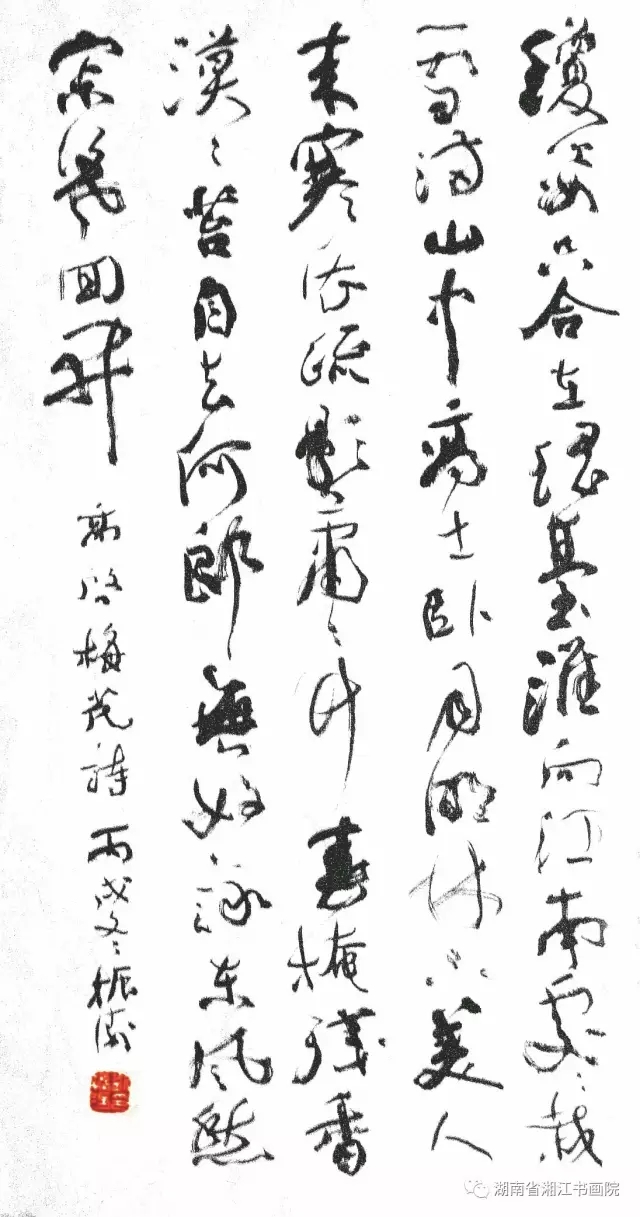 瓊姿只合在瑤臺誰向江南處〻栽
雪滿山中高士臥月明林下美人
來寒依疏影蕭〻竹春掩殘香
漠〻苔自去何郎無好詠東風愁
寂幾回開
高啓梅花詩 丙戌冬
湖南省湘江书画院